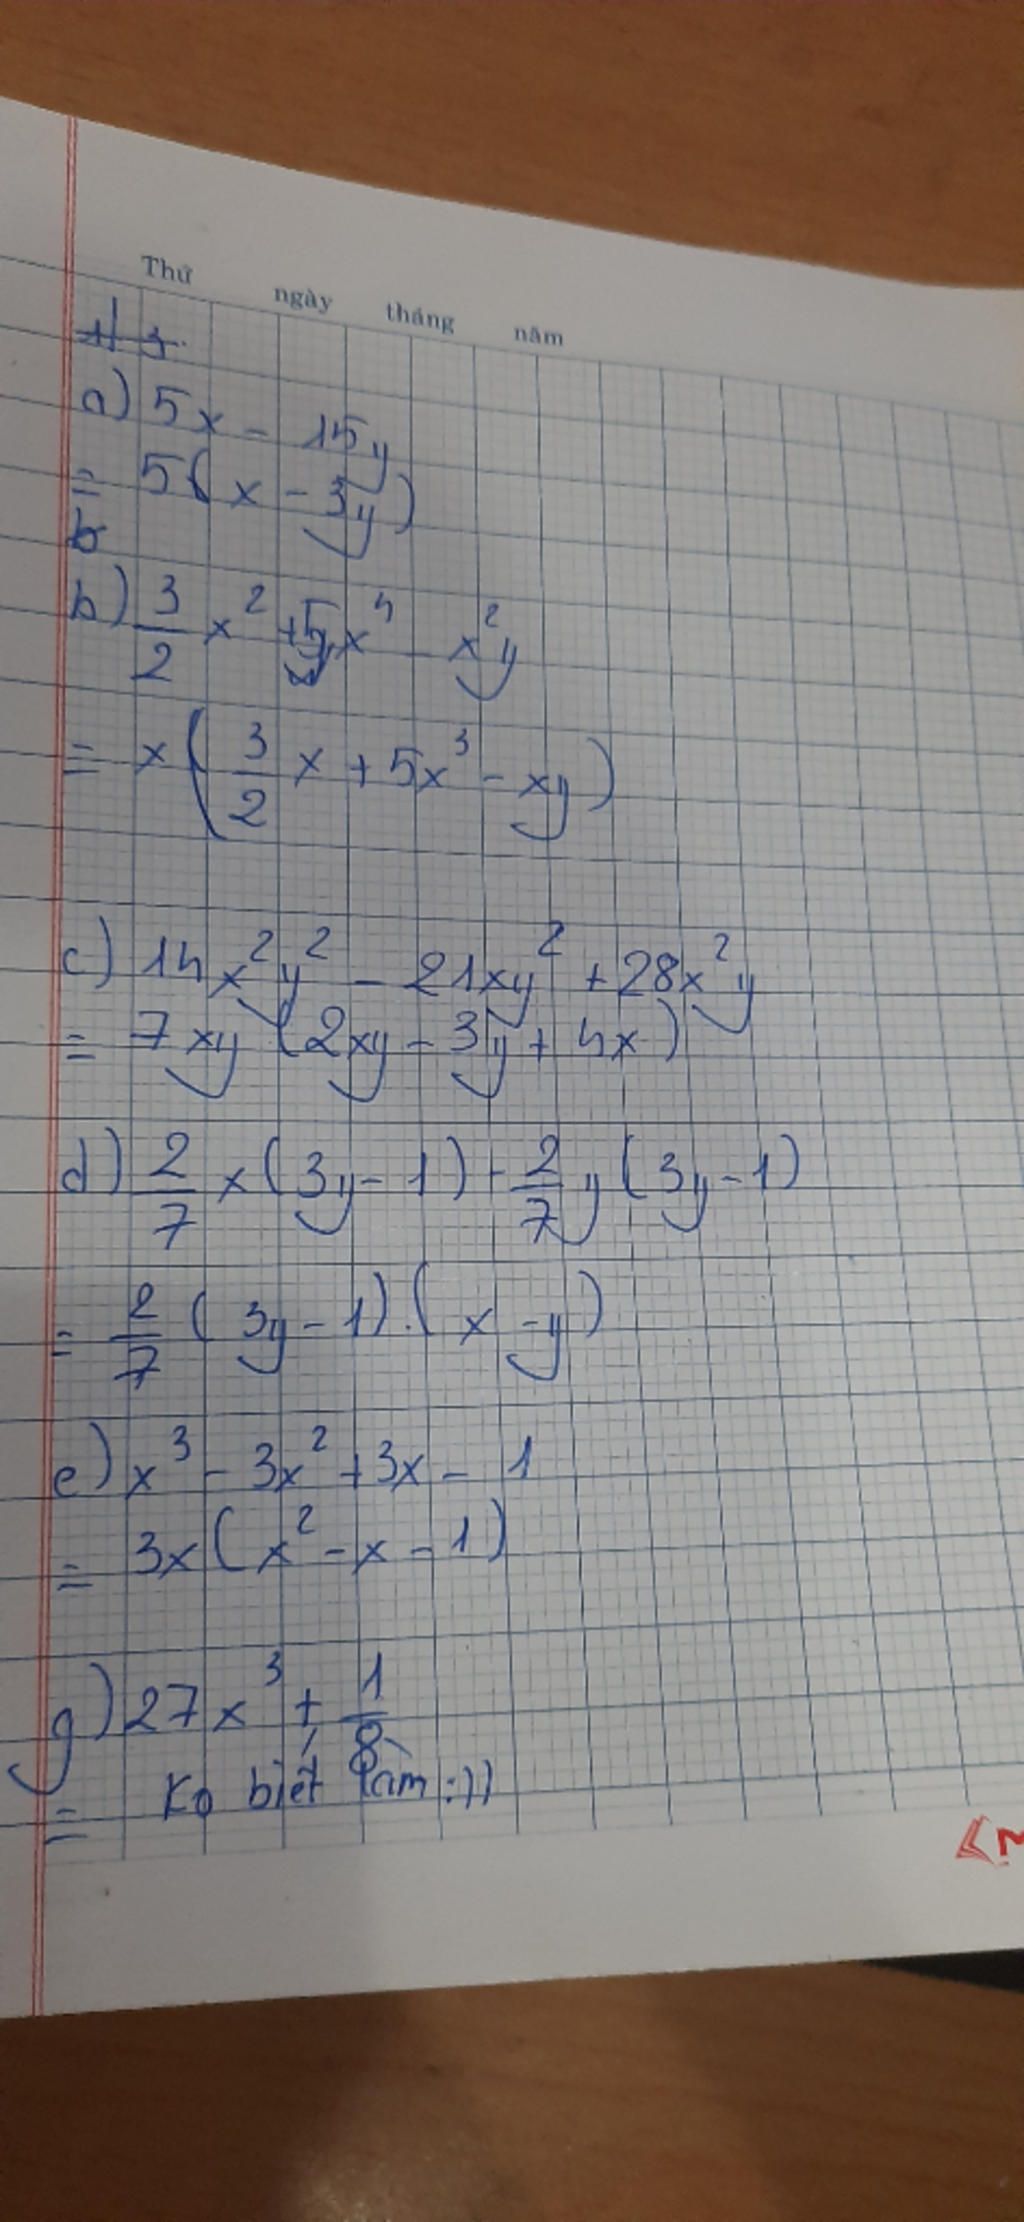 Thứ ngày tháng năm
a) 5x - 15y
= 5(x - 3y)
b) 3/2 x² + 5x⁴ - x²y
= x(3/2 x + 5x³ - xy)
c) 14x²y² - 21xy² + 28x²y
= 7xy (2xy - 3y + 4x)
d) 2/7 x(3y - 1) - 2/7 y(3y - 1)
= 2/7 (3y - 1).(x - y)
e) x³ - 3x² + 3x - 1
= 3x(x² - x - 1)
g) 27x³ + 1/8
= Ko biết làm :))